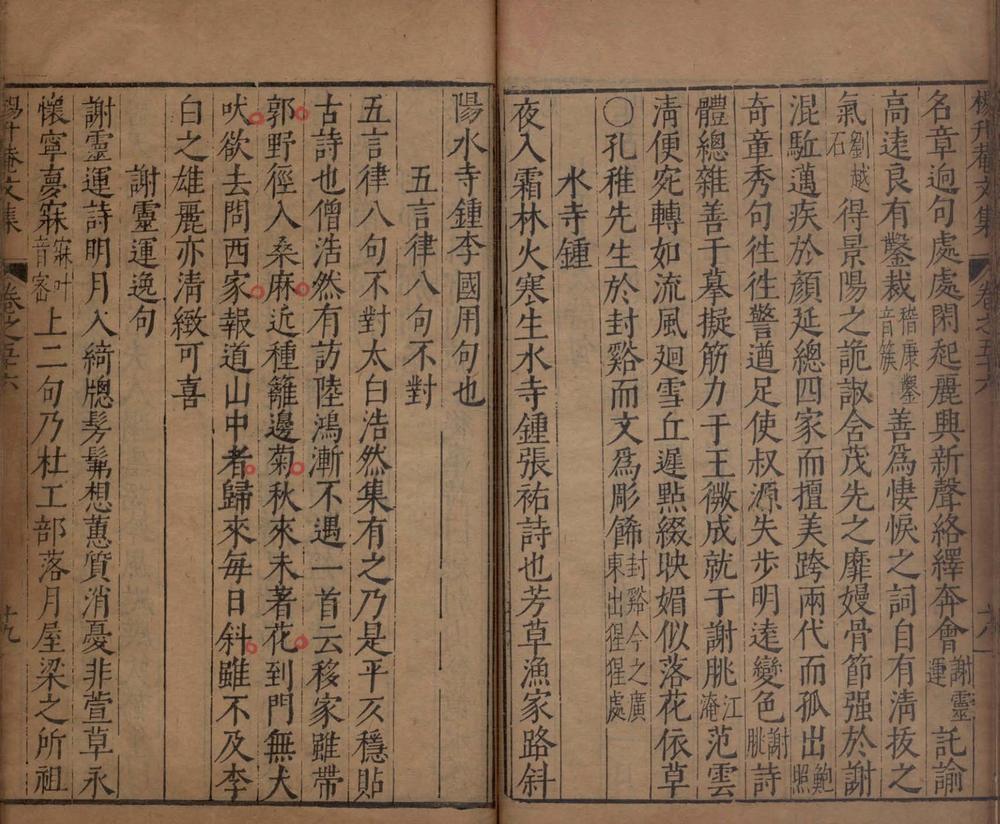 楊升菴文集 卷之五十六 十八
名章逈句處處閑起麗興新聲絡繹奔會謝靈運託諭
高逺良有鑿裁嵇康鑿音簇善爲悽悷之詞自有淸拔之
氣劉越石得景陽之詭諔含茂先之靡嫚骨節强於謝
混駈邁疾於顏延總四家而擅美跨兩代而孤出鮑照
奇童秀句徃徃警遒足使叔源失步明逺變色謝朓詩
體總雜善于摹擬筋力于王微成就于謝朓江淹范雲
淸便宛轉如流風廻雪丘遲點綴映媚似落花依草
○孔稚先生於封谿而文爲彫餙封谿今之廣東出猩猩處
水寺鍾
夜入霜林火寒生水寺鍾張祐詩也芳草漁家路斜
陽水寺鍾李國用句也
五言律八句不對
五言律八句不對太白浩然集有之乃是平亥穩貼
古詩也僧浩然有訪陸鴻漸不遇一首云移家雖帶
郭野徑入桑麻近種籬邊菊秋來未著花到門無犬
吠欲去問西家報道山中者歸來每日斜雖不及李
白之雄麗亦淸緻可喜
謝靈運逸句
謝靈運詩明月入綺牕髣髴想蕙質消憂非萱草永
懷寧夣寐寐叶音密上二句乃杜工部落月屋梁之所祖
楊升菴文集 卷之五十六 十九